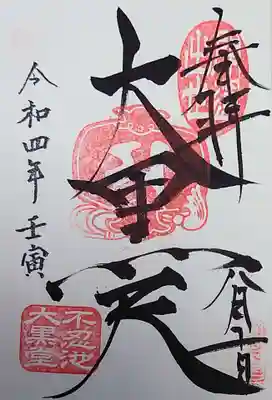 奉拝
八月
大黒天
令和四年 壬寅
不忍池
大黒堂